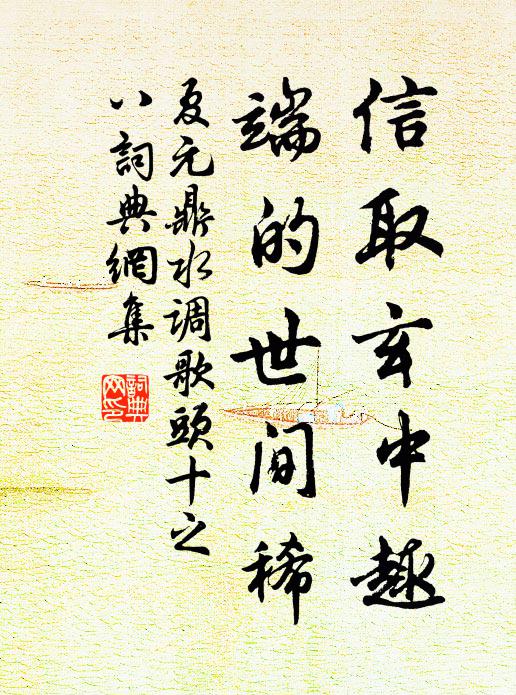 信取玄中趣
端的世间稀
夏元鼎水调歌頭十之
八詞典網集
詞典
网印